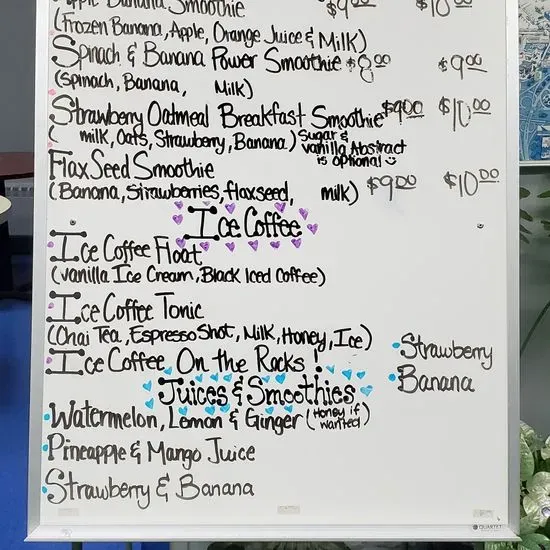 Apple Banana Smoothie $9.00 $10.00
(Frozen Banana, Apple, Orange Juice & Milk)
Spinach & Banana Power Smoothie $8.00 $9.00
(Spinach, Banana, Milk)
Strawberry Oatmeal Breakfast Smoothie $9.00 $10.00
(milk, Oats, Strawberry, Banana) Sugar &
vanilla Abstract
is optional
Flax Seed Smoothie
(Banana, Strawberries, flaxseed, milk) $9.00 $10.00
Ice Coffee
Ice Coffee Float
(vanilla Ice Cream, Black Iced Coffee)
Ice Coffee Tonic
(Chai Tea, Espresso Shot, Milk, Honey, Ice)
Ice Coffee On the Rocks !
Strawberry
Banana
Juices & Smoothies
Watermelon, Lemon & Ginger (Honey if
wanted)
Pineapple & Mango Juice
Strawberry & Banana
QUARTET